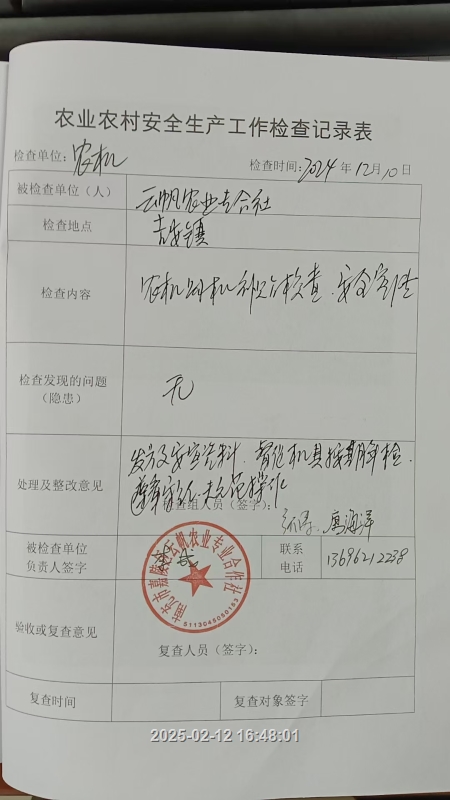 农业农村安全生产工作检查记录表
检查单位：农机
检查时间：2024年12月10日
被检查单位（人） 云帆农业专合社
检查地点 吉安镇
检查内容 农机 检查、安全宣传
检查发现的问题（隐患） 无
处理及整改意见 发放安全宣资料、督促机具按期年检、
检查组人员（签字）：
唐海洋
被检查单位负责人签字
联系电话 13696212238
南充市嘉陵区云帆农业专业合作社
5113045050163
验收或复查意见
复查人员（签字）：
复查时间
复查对象签字
2025-02-12 16:48:01